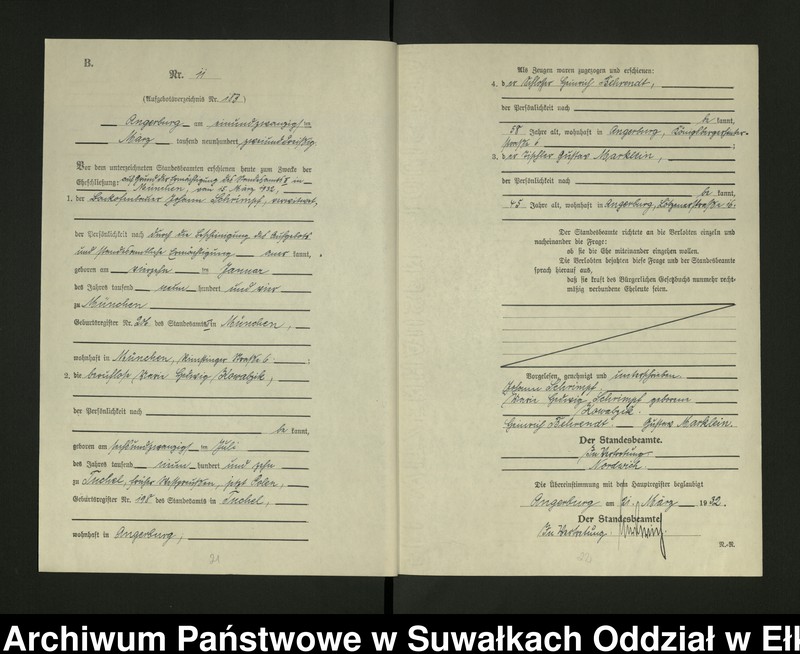 B.
Nr. 11
(Aufgebotsverzeichnis Nr.
Angerburg am einundzwanzigsten
März tausend neunhundert zweiunddreißig.
Vor dem unterzeichneten Standesbeamten erschienen heute zum Zwecke der
Eheschließung: auf Grund der Ermächtigung des Standesamts in
München, vom 15. März 1932,
1. der Johann Schrimpf,
der Persönlichkeit nach durch die Bescheinigung des Aufgebots
und standesamtliche Ermächtigung aner kannt,
geboren am vierzehn ten Januar
des Jahres tausend neun hundert und vier
zu München
Geburtsregister Nr. 206 des Standesamts in München,
wohnhaft in München, Straße 6 ;
2. die berufslose Marie Hedwig Kowalzik,
der Persönlichkeit nach
be kannt,
geboren am sechsundzwanzigsten Juli
des Jahres tausend neun hundert und zehn
zu Tuchel, früher Westpreußen, jetzt Polen,
Geburtsregister Nr. 198 des Standesamts in Tuchel,
wohnhaft in Angerburg,
21
Als Zeugen waren zugezogen und erschienen:
4. der Schlosser Heinrich Behrendt,
der Persönlichkeit nach
be kannt,
58 Jahre alt, wohnhaft in Angerburg, Königsbergerstraße 6 ;
3. der Tischler Gustav Marklein,
der Persönlichkeit nach
be kannt,
45 Jahre alt, wohnhaft in Angerburg, Lötzenerstraße 16.
Der Standesbeamte richtete an die Verlobten einzeln und
nacheinander die Frage:
ob sie die Ehe miteinander eingehen wollen.
Die Verlobten bejahten diese Frage und der Standesbeamte
sprach hierauf aus,
daß sie kraft des Bürgerlichen Gesetzbuchs nunmehr recht-
mäßig verbundene Eheleute seien.
Vorgelesen, genehmigt und unterschrieben.
Johann Schrimpf.
Marie Hedwig Schrimpf geborene
Kowalzik.
Heinrich Behrendt Gustav Marklein.
Der Standesbeamte.
In Vertretung.
Die Übereinstimmung mit dem Hauptregister beglaubigt
Angerburg am 21. März 1932.
Der Standesbeamte
In Vertretung.
N.-R.
Archiwum Państwowe w Suwałkach Oddział w Ełk